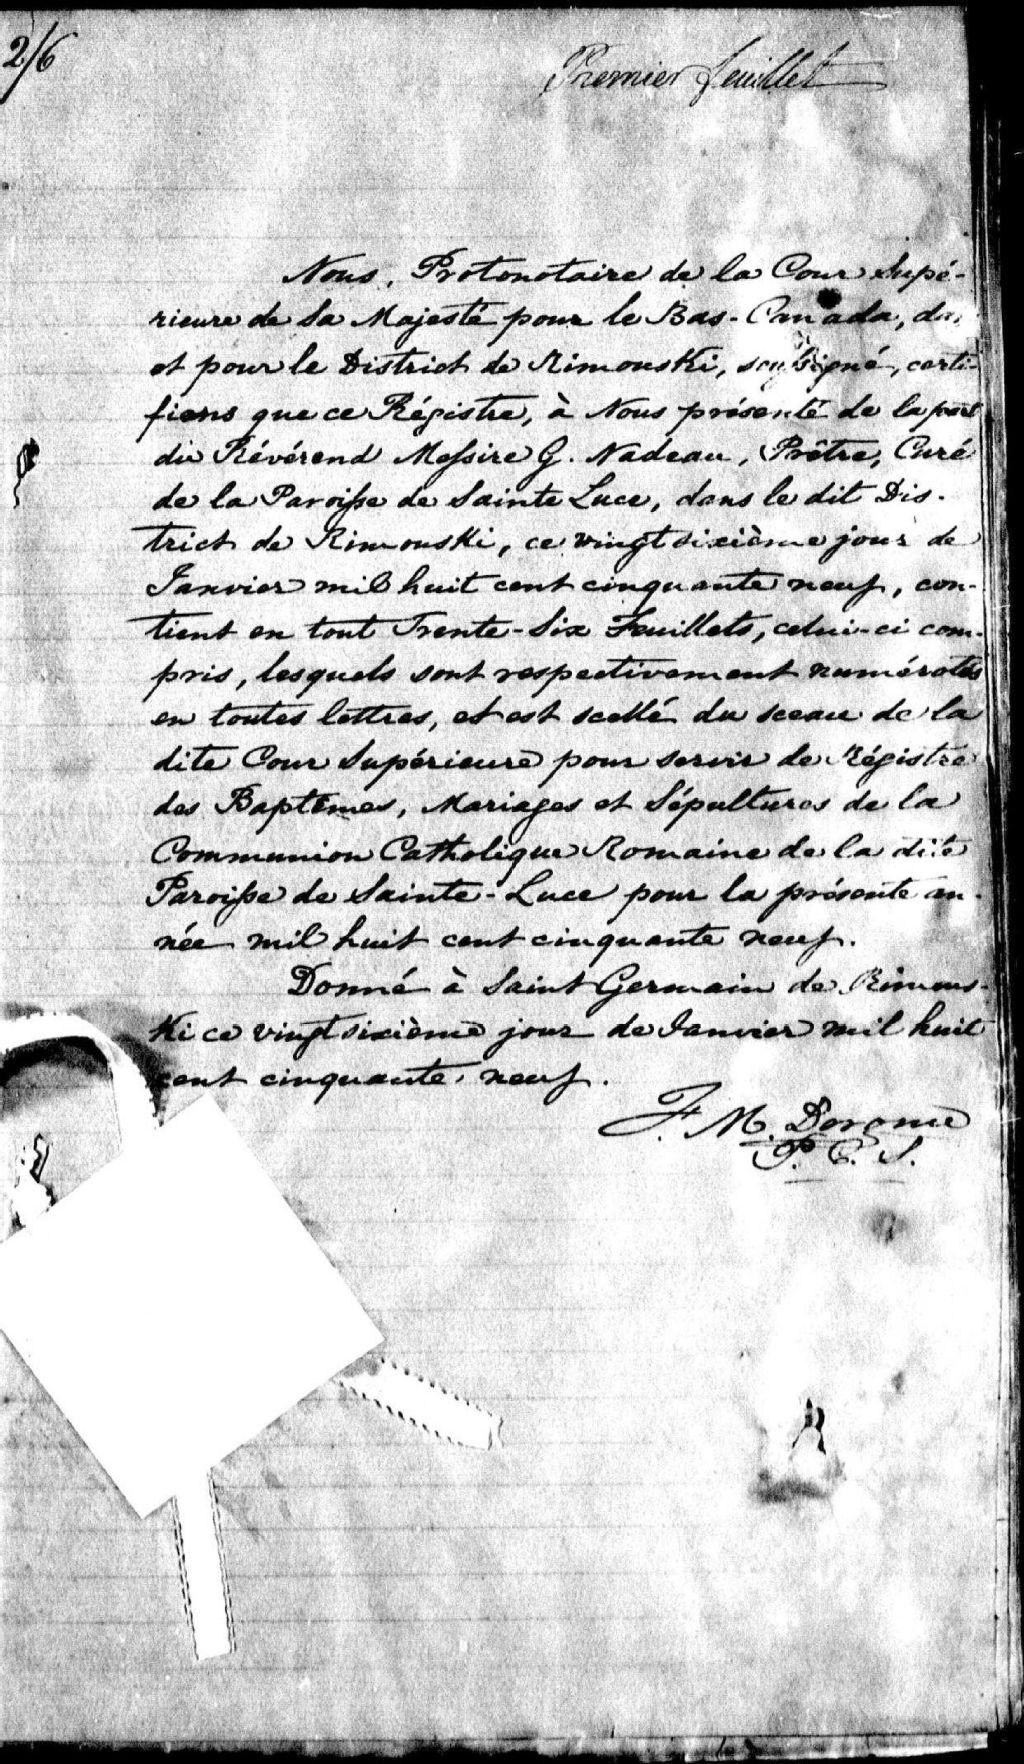 2/6
Premier feuillet
Nous, Protonotaire de la Cour Supé-
rieure de Sa Majesté pour le Bas-Canada, da
et pour le District de Rimouski, soussigné, certi-
fions que ce Régistre, à Nous présenté de la part
du Révérend Messire G. Nadeau, Prêtre, Curé
de la Paroisse de Sainte Luce, dans le dit Dis-
trict de Rimouski, ce vingt sixième jour de
Janvier mil huit cent cinquante neuf, con-
tient en tout Trente-Six Feuillets, celui-ci com-
pris, lesquels sont respectivement numérotés
en toutes lettres, et est scellé du sceau de la
dite Cour Supérieure pour servir de Régistre
des Baptêmes, Mariages et Sépultures de la
Communion Catholique Romaine de la dite
Paroisse de Sainte-Luce pour la présente an-
née mil huit cent cinquante neuf.
Donné à Saint Germain de Rimous-
Ki ce vingt sixième jour de Janvier mil huit
cent cinquante neuf.
F. M. Derome
P. C. S.